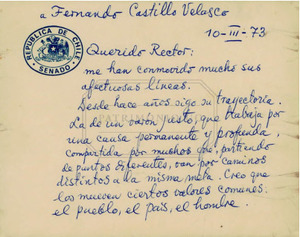 a Fernando Castillo Velasco
10-III-73
REPUBLICA DE CHILE
SENADO
Querido Rector:
me han conmovido mucho sus
afectuosas líneas.
Desde hace años sigo su trayectoria.
La de un varón justo, que trabaja por
una causa permanente y profunda,
compartida por muchos que, partiendo
de puntos diferentes, van por caminos
distintos a la misma meta. Creo que
los mueven ciertos valores comunes:
el pueblo, el país, el hombre.